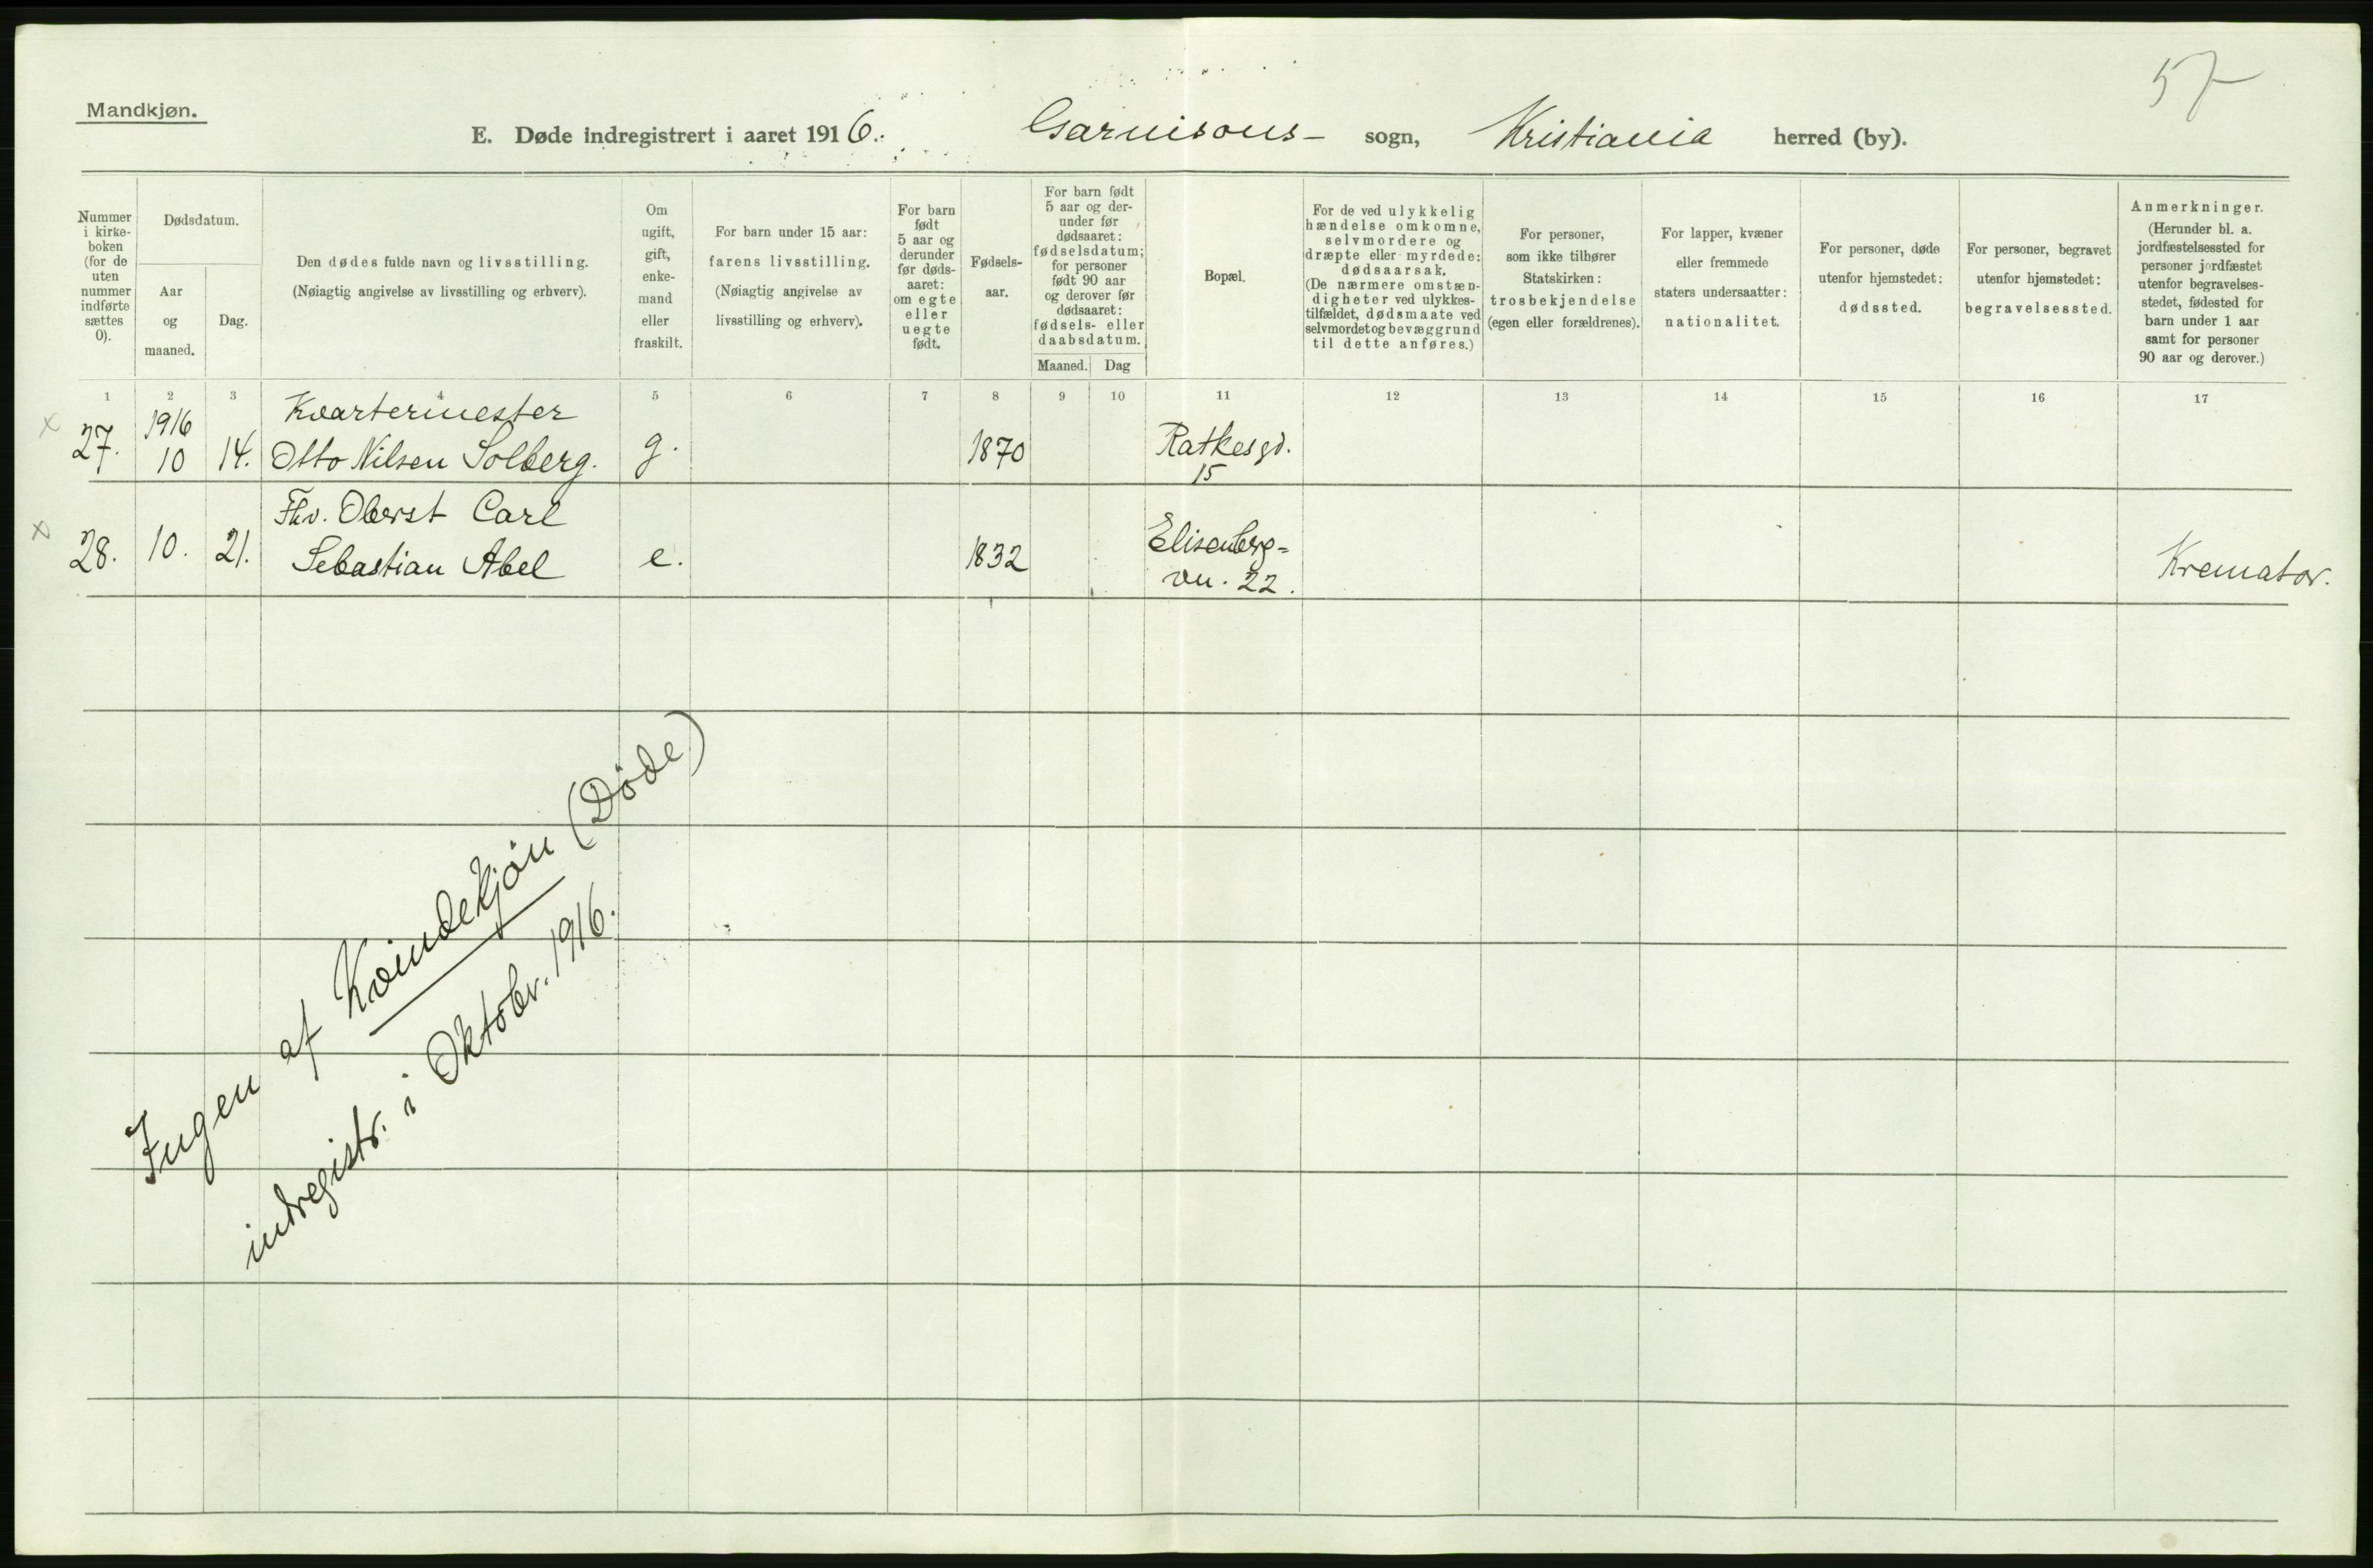 57
Mandkjøn.
E. Døde indregistrert i aaret 1916. Garnisons- sogn, Kristiania herred (by).
Nummer
i kirke-
boken
(for de
uten
nummer
indførte
sættes
0).
Dødsdatum.
Aar
og
maaned.
Dag.
Den dødes fulde navn og livsstilling.
(Nøiagtig angivelse av livsstilling og erhverv).
Om
ugift,
gift,
enke-
mand
eller
fraskilt.
For barn under 15 aar:
farens livsstilling.
(Nøiagtig angivelse av
livsstilling og erhverv).
For barn
født
5 aar og
derunder
før døds-
aaret:
om egte
eller
uegte
født.
Fødsels-
aar.
For barn født
5 aar og der-
under før
dødsaaret:
fødselsdatum;
for personer
født 90 aar
og derover før
dødsaaret:
fødsels- eller
daabsdatum.
Maaned. Dag
Bopæl.
For de ved ulykkelig
hændelse omkomne,
selvmordere og
dræpte eller myrdede:
dødsaarsak.
(De nærmere omstæn-
digheter ved ulykkes-
tilfældet, dødsmaate ved
selvmordet og bevæggrund
til dette anføres.)
For personer,
som ikke tilhører
Statskirken:
trosbekjendelse
(egen eller forældrenes).
For lapper, kvæner
eller fremmede
staters undersaatter:
nationalitet.
For personer, døde
utenfor hjemstedet:
dødssted.
For personer, begravet
utenfor hjemstedet:
begravelsessted.
Anmerkninger.
(Herunder bl. a.
jordfæstelsessted for
personer jordfæstet
utenfor begravelses-
stedet, fødested for
barn under 1 aar
samt for personer
90 aar og derover.)
1 2 3 4 5 6 7 8 9 10 11 12 13 14 15 16 17
1916 Kvartermester
x 27. 10 14. Otto Nilsen Solberg. g. 1870 Ratkesgd.
15
Fhv. Oberst Carl
x 28. 10. 21. Sebastian Abel e. 1832 Elisenberg=
vn. 22. Kremator.
Ingen af Kvindekjøn (Døde)
indregistr. i Oktobr. 1916.